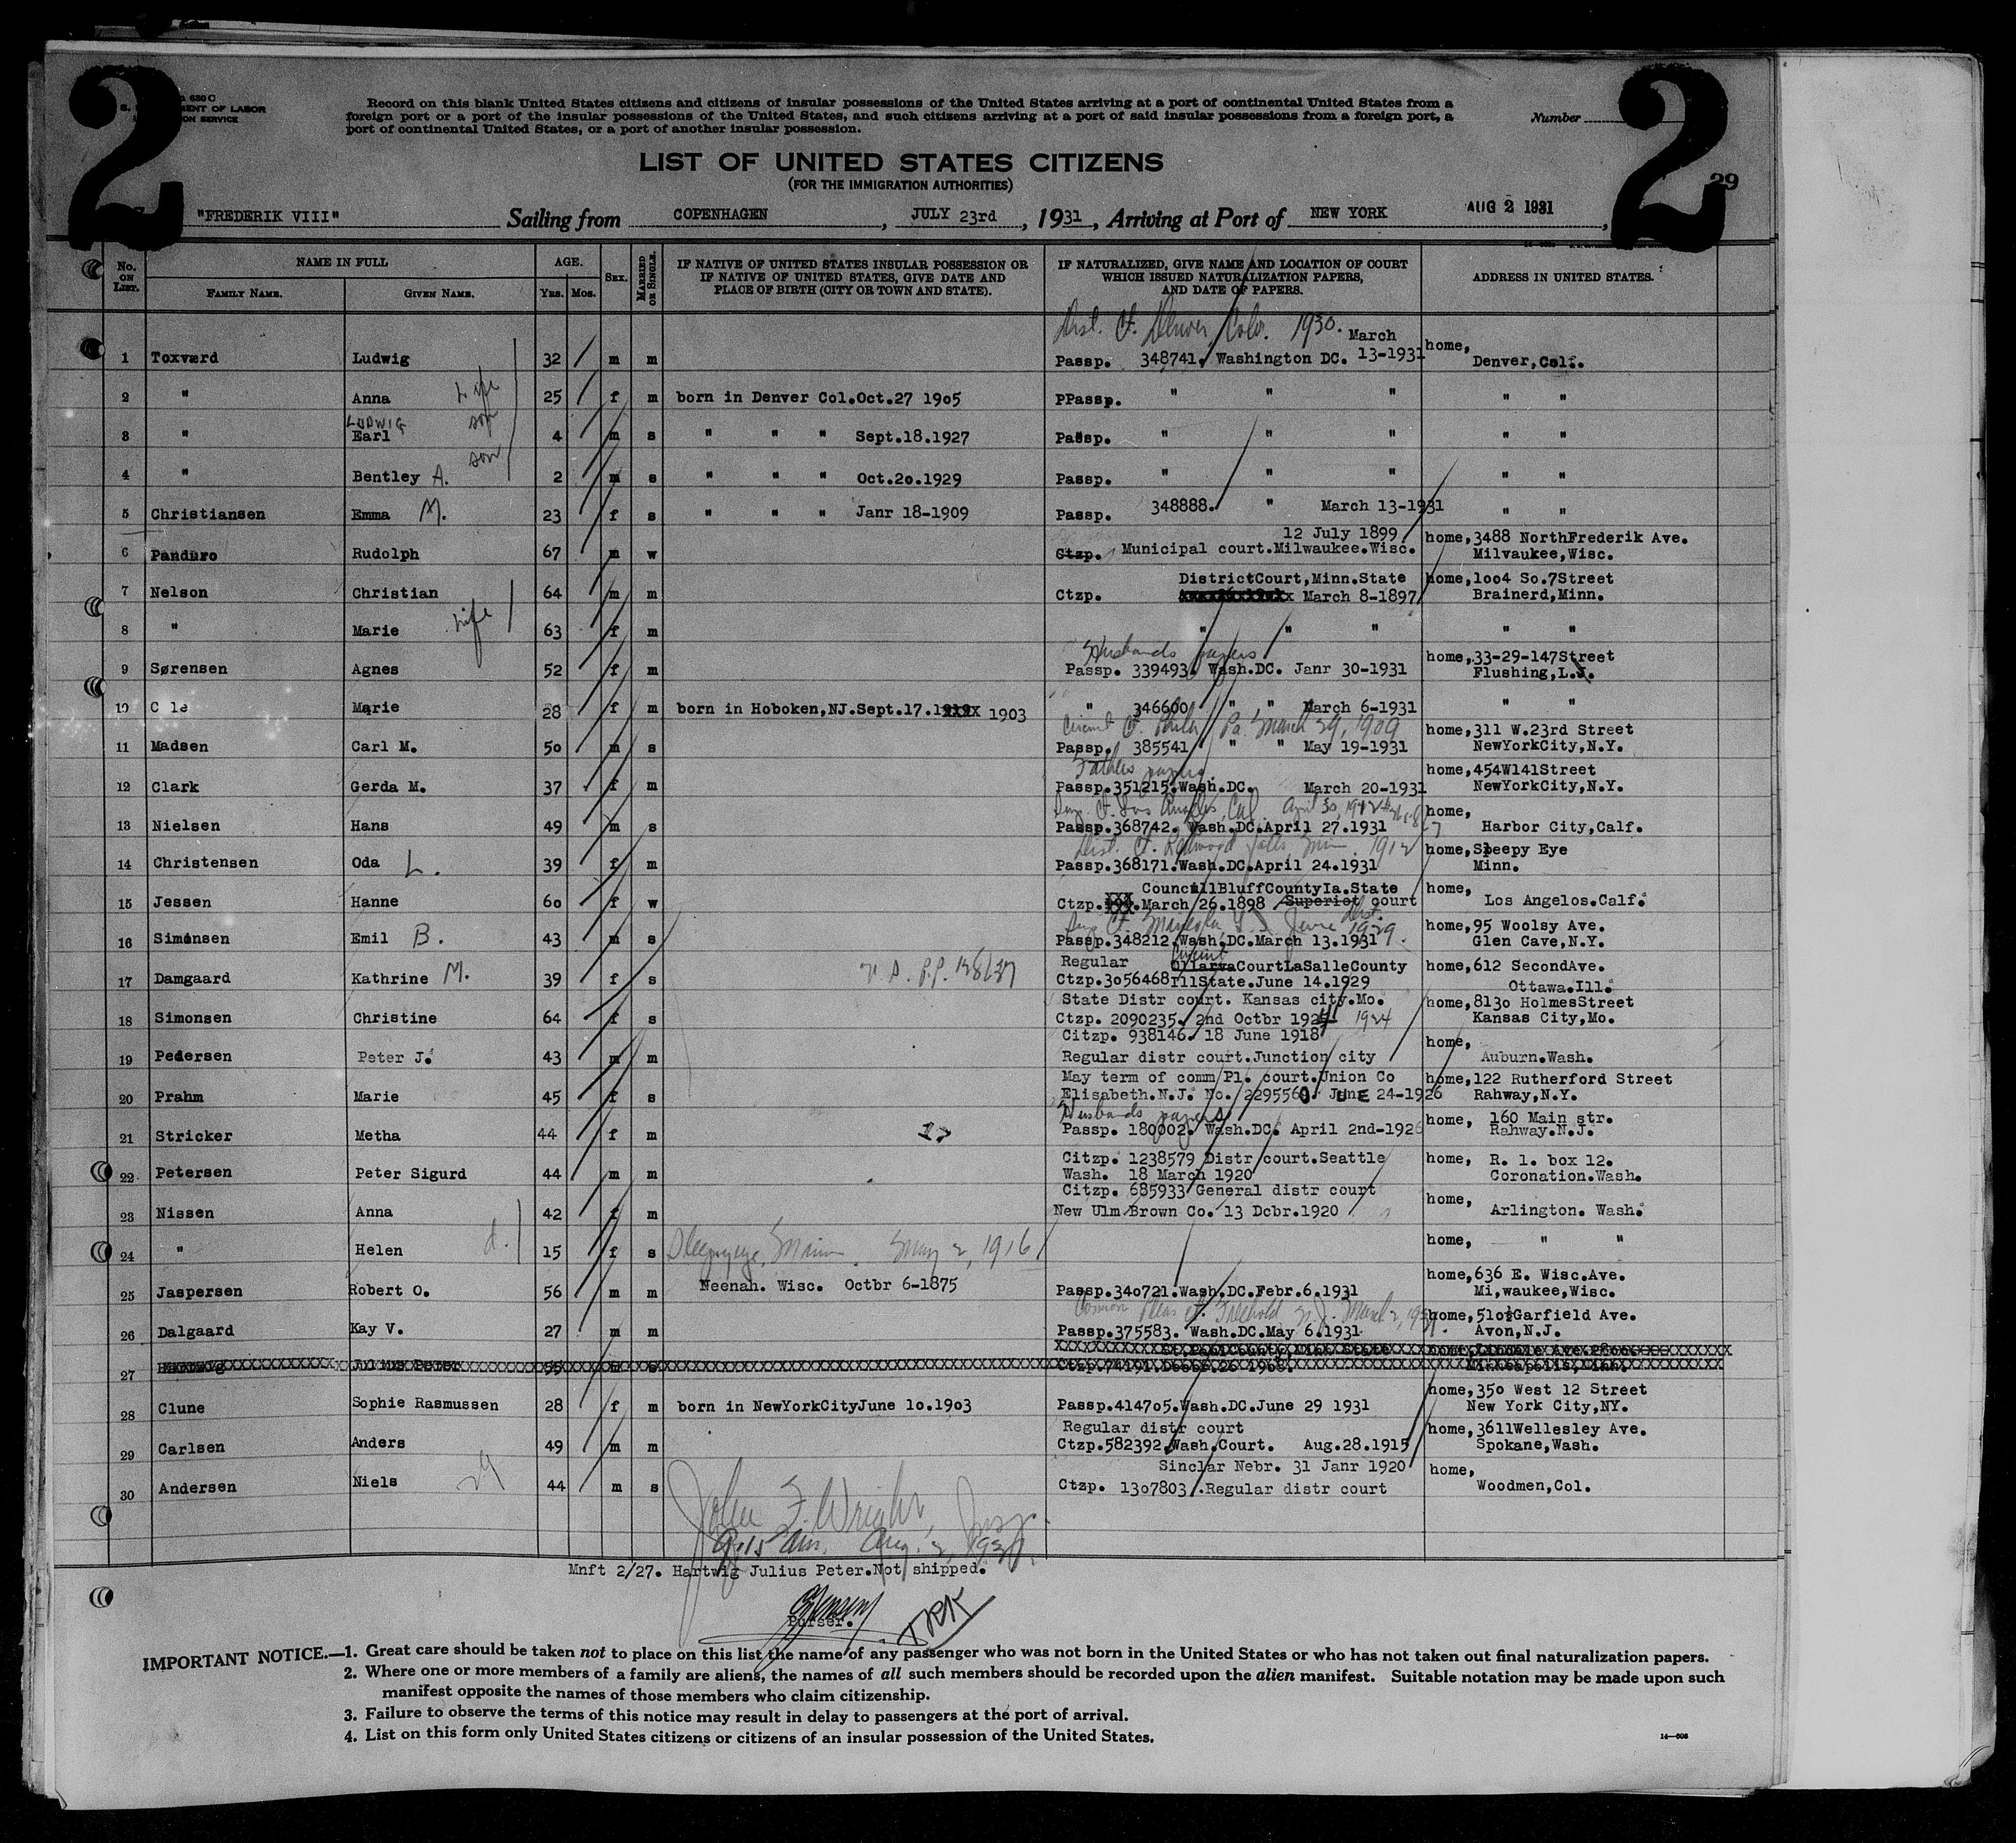 2
2
630 C
OF LABOR
SERVICE
Record on this blank United States citizens and citizens of insular possessions of the United States arriving at a port of continental United States from a
foreign port or a port of the insular possessions of the United States, and such citizens arriving at a port of said insular possessions from a foreign port, a
port of continental United States, or a port of another insular possession.
Number
LIST OF UNITED STATES CITIZENS
(FOR THE IMMIGRATION AUTHORITIES)
29
"FREDERIK VIII" Sailing from COPENHAGEN, JULY 23rd, 1931, Arriving at Port of NEW YORK AUG 2 1931,
No. ON LIST. NAME IN FULL AGE. SEX. MARRIED OR SINGLE. IF NATIVE OF UNITED STATES INSULAR POSSESSION OR IF NATIVE OF UNITED STATES, GIVE DATE AND PLACE OF BIRTH (CITY OR TOWN AND STATE). IF NATURALIZED, GIVE NAME AND LOCATION OF COURT WHICH ISSUED NATURALIZATION PAPERS, AND DATE OF PAPERS. ADDRESS IN UNITED STATES.
FAMILY NAME. GIVEN NAME. YRS. MOS.
Dist. Ct. Denver, Colo. 1930.
1 Toxværd Ludwig 32 m m Passp. 348741. Washington DC. March 13-1931 home, Denver,Col.
2 " Anna Wife 25 f m born in Denver Col.Oct.27 1905 PPassp. " " " " "
LUDWIG
3 " Earl son 4 m s " " " Sept.18.1927 Passp. " " " " "
4 " Bentley A. son 2 m s " " " Oct.20.1929 Passp. " " " " "
5 Christiansen Emma M. 23 f s " " " Janr 18-1909 Passp. 348888. " March 13-1931 " "
12 July 1899 home,3488 NorthFrederik Ave.
6 Panduro Rudolph 67 m w Ctzp. Municipal court.Milwaukee.Wisc. Milvaukee,Wisc.
DistrictCourt,Minn.State home,1004 So.7Street
7 Nelson Christian 64 m m Ctzp. March 8-1897 Brainerd,Minn.
8 " Marie Wife 63 f m " " " " "
Husbands papers home,33-29-147Street
9 Sørensen Agnes 52 f m Passp. 339493. Wash.DC. Janr 30-1931 Flushing,L.I.
10 C le Marie 28 f m born in Hoboken,NJ.Sept.17. 1903 " 346600 " " March 6-1931 " "
Circuit Ct. Phila Pa. March 29, 1909 home,311 W.23rd Street
11 Madsen Carl M. 50 m s Passp. 385541 " " May 19-1931 NewYorkCity,N.Y.
Fathers papers. home,454W141Street
12 Clark Gerda M. 37 f m Passp.351215.Wash.DC. March 20-1931 NewYorkCity,N.Y.
Ct. Los Angeles, Cal. April 30, home,
13 Nielsen Hans 49 m s Passp.368742. Wash.DC.April 27.1931 Harbor City,Calf.
Dist. Ct. Redwood Falls, Minn. 1912 home,Sleepy Eye
14 Christensen Oda L. 39 f m Passp.368171.Wash.DC.April 24.1931 Minn.
CouncillBluffCountyIa.State home,
15 Jessen Hanne 60 f w Ctzp. March 26.1898 Superiot court Los Angelos.Calf.
Ct. Mineola, June 1929. home,95 Woolsy Ave.
16 Simonsen Emil B. 43 m s Passp.348212.Wash.DC.March 13.1931 Glen Cave,N.Y.
Regular Circuit CourtLaSalleCounty home,612 SecondAve.
17 Damgaard Kathrine M. 39 f s Ctzp.3056468IllState.June 14.1929 Ottawa.Ill.
State Distr court. Kansas city.Mo. home,8130 HolmesStreet
18 Simonsen Christine 64 f s Ctzp. 2090235. 2nd Octbr 1924 1924 Kansas City,Mo.
Citzp. 938146. 18 June 1918 home,
19 Pedersen Peter J. 43 m m Regular distr court.Junction city Auburn.Wash.
May term of comm Pl. court.Union Co home,122 Rutherford Street
20 Prahm Marie 45 f s Elisabeth.N.J. No. 2295560. JUNE 24-1926 Rahway,N.Y.
Husbands papers home, 160 Main str.
21 Stricker Metha 44 f m Passp. 180002. Wash.DC. April 2nd-1926 Rahway.N.J.
Citzp. 1238579 Distr court.Seattle home, R. 1. box 12.
22 Petersen Peter Sigurd 44 m m Wash. 18 March 1920 Coronation.Wash.
Citzp. 685933 General distr court home,
23 Nissen Anna 42 f m New Ulm Brown Co. 13 Dcbr.1920 Arlington. Wash.
24 " Helen d. 15 f s Sleepyeye, Minn. May 2, 1916 home, " "
Neenah. Wisc. Octbr 6-1875 home,636 E. Wisc.Ave.
25 Jaspersen Robert O. 56 m m Passp.340721.Wash.DC.Febr.6.1931 Mi,waukee,Wisc.
Common Pleas Ct. Freehold, N.J. March 2, home,510½Garfield Ave.
26 Dalgaard Kay V. 27 m m Passp.375583. Wash.DC.May 6.1931 Avon,N.J.
27 Julius Peter 55 m s Ctzp.74191. 26 1908. Minneapolis, Minn.
home,350 West 12 Street
28 Clune Sophie Rasmussen 28 f m born in NewYorkCityJune 10.1903 Passp.414705.Wash.DC.June 29 1931 New York City,NY.
Regular distr court home,3611Wellesley Ave.
29 Carlsen Anders 49 m m Ctzp.582392.Wash.Court. Aug.28.1915 Spokane,Wash.
Sinclar Nebr. 31 Janr 1920 home,
30 Andersen Niels 29 44 m s Ctzp. 1307803 .Regular distr court Woodmen,Col.
John F. Wright, Insp.
9:15 am. Aug. 2, 1931.
Mnft 2/27. Hartwig Julius Peter.Not shipped.
Purser.
IMPORTANT NOTICE.—1. Great care should be taken not to place on this list the name of any passenger who was not born in the United States or who has not taken out final naturalization papers.
2. Where one or more members of a family are aliens, the names of all such members should be recorded upon the alien manifest. Suitable notation may be made upon such
manifest opposite the names of those members who claim citizenship.
3. Failure to observe the terms of this notice may result in delay to passengers at the port of arrival.
4. List on this form only United States citizens or citizens of an insular possession of the United States.
14—608